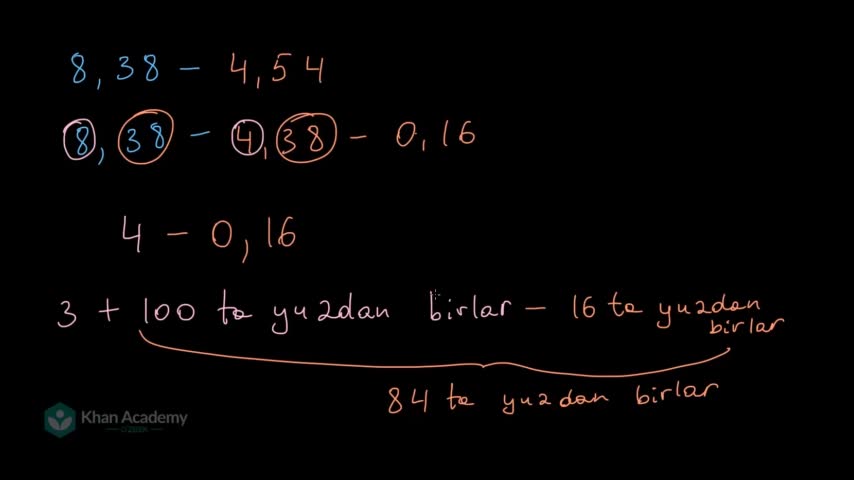 8,38 - 4,54
8,38 - 4,38 - 0,16
4 - 0,16
3 + 100 ta yuzdan birlar - 16 ta yuzdan
birlar
84 ta yuzdan birlar
Khan Academy
O'ZBEK